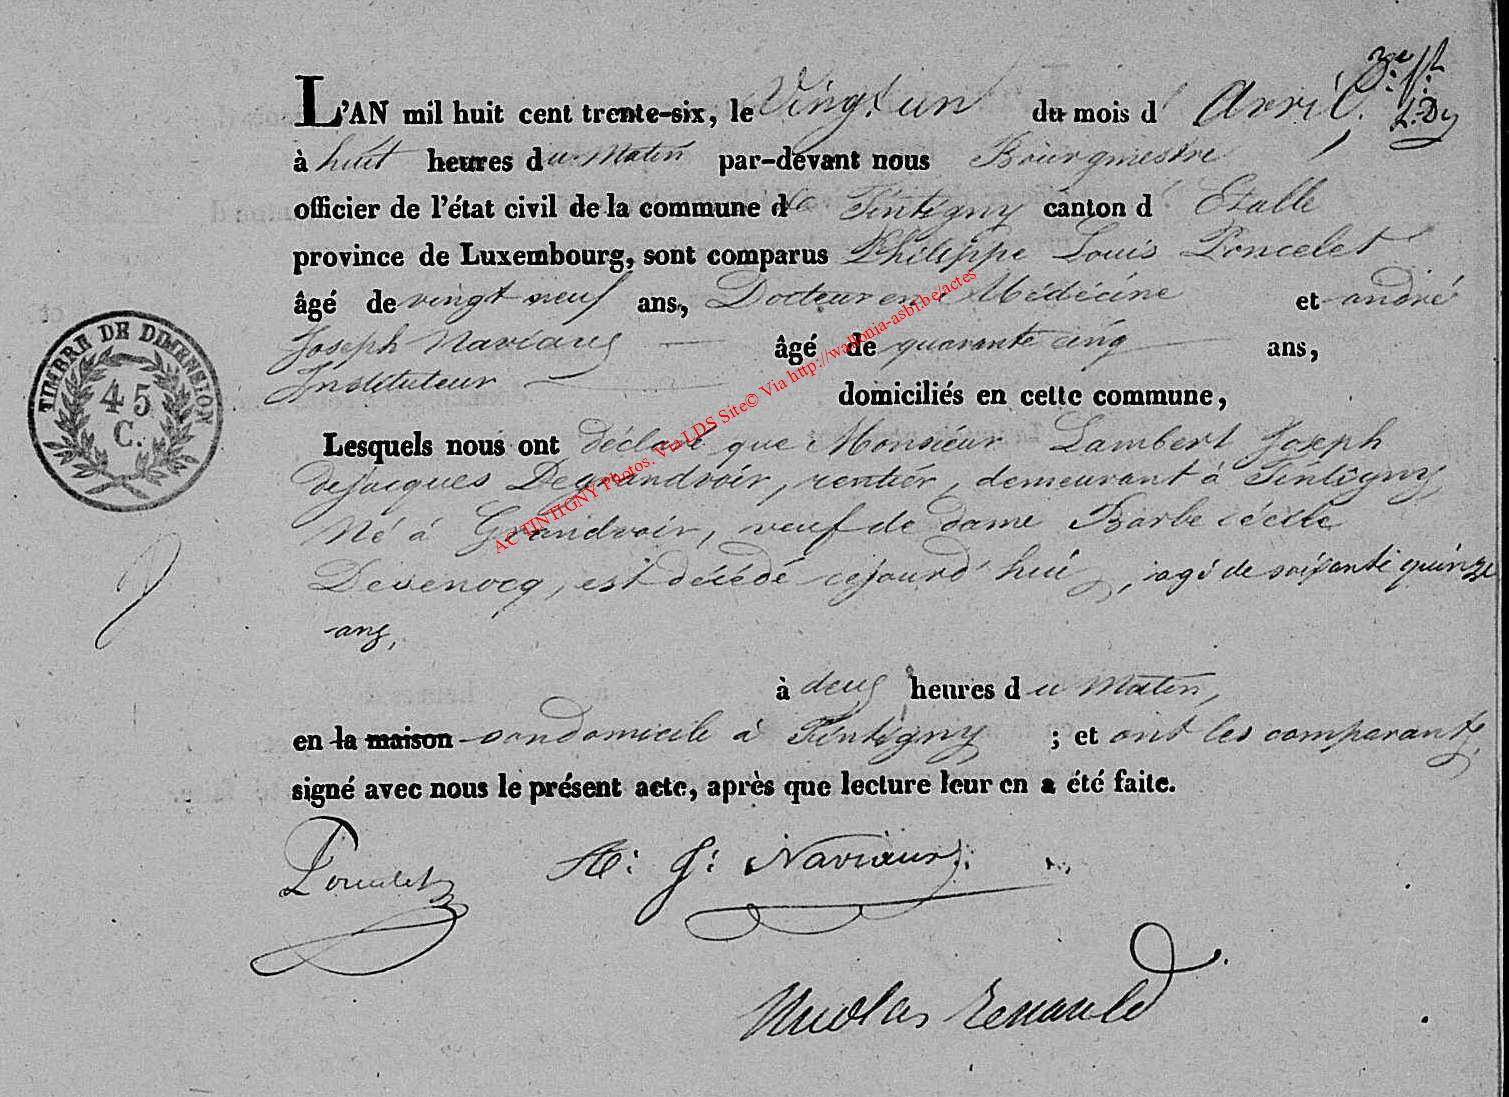 L'AN mil huit cent trente-six, le Vingt un du mois d' Avril.
à huit heures du Matin par-devant nous Bourgmestre
officier de l'état civil de la commune de Tintigny canton d' Etalle
province de Luxembourg, sont comparus Philippe Louis Poncelet
âgé de vingt neuf ans, Docteur en Médécine et andré
Joseph Naviaux âgé de quarante cinq ans,
Instituteur domiciliés en cette commune,
Lesquels nous ont déclaré que Monsieur Lambert Joseph
de jacques Degrandvoir, rentier, demeurant à Tintigny
Né à Grandvoir, veuf de dame Barbe cécile
est décédé cejourd'hui, agé de soixante quinze
ans,
à deux heures du Matin,
en la maison son domicile à Tintigny ; et ont les comparants
signé avec nous le présent acte, après que lecture leur en a été faite.
Poncelet A: J: Naviaux
Nicolas Renauld
TIMBRE DE DIMENSION
45
C.
AC TINTIGNY Photos. Via LDS Site© Via http://wallonia-asbl.be/actes